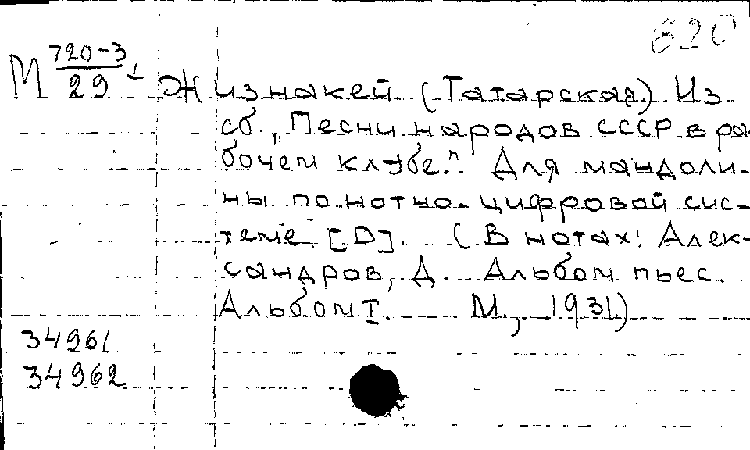 620
М 720-3/29 1
Жизнакей (Татарская) Из
сб. „Песни народов СССР в ра
бочем клубе." Для мандоли-
ны по нотно-цифровой сис-
теме [D]. (В нотах: Алек-
сандров, Д. Альбом пьес.
Альбом I. М., 1931)
34961
34962